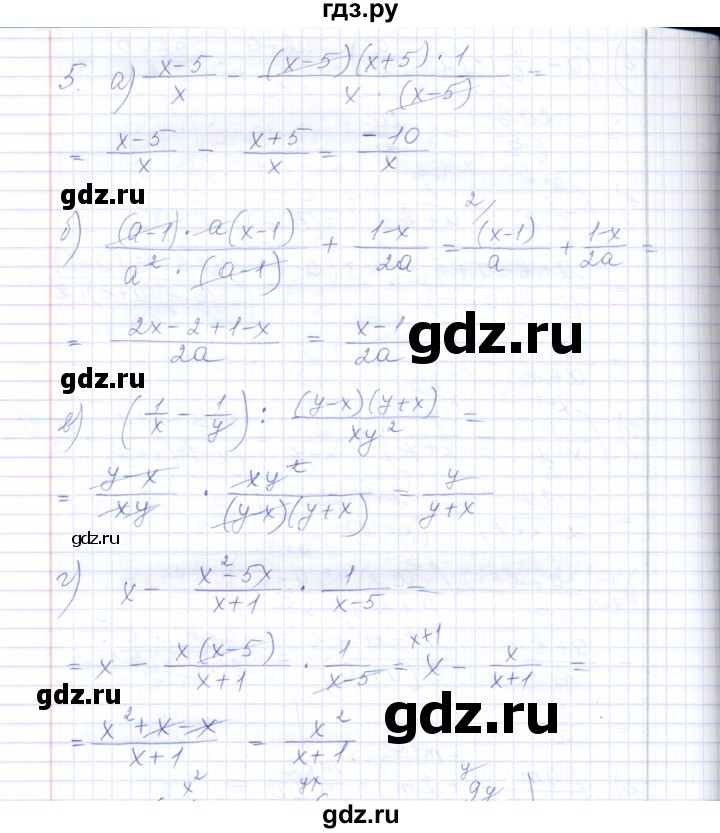 гдз.ру
5. а) (x-5)/x - ((x-5)(x+5)·1)/(x·(x-5)) =
= (x-5)/x - (x+5)/x = -10/x
gdz.ru
б) ((a-1)·a(x-1))/(a²·(a-1)) + (1-x)/(2a) = 2/ (x-1)/a + (1-x)/(2a) =
= (2x-2+1-x)/(2a) = (x-1)/(2a)
gdz.ru
gdz.ru
в) (1/x - 1/y) : ((y-x)(y+x))/(xy²) =
= (y-x)/(xy) · (xy²)/((y-x)(y+x)) = y/(y+x)
gdz.ru
г) x - (x²-5x)/(x+1) · 1/(x-5) =
= x - (x(x-5))/(x+1) · 1/(x-5) = x+1/ x - x/(x+1) =
gdz.ru
gdz.ru
= (x²+x-x)/(x+1) = x²/(x+1)
x² yx y 9y
gdz.ru